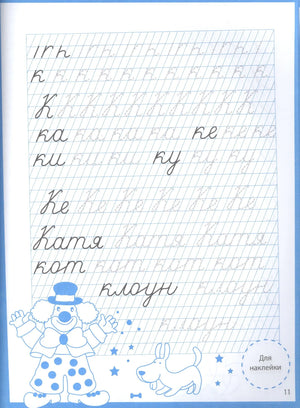 к к к к к к к к к к к
К К К К К К К К К К
ка ка ка ка ке ке ке
ки ки ки ки ку ку ку
Ке Ке Ке Ке Ке Ке
Катя Катя Катя
кот кот кот кот
клоун клоун
клоун
Для
наклейки
11